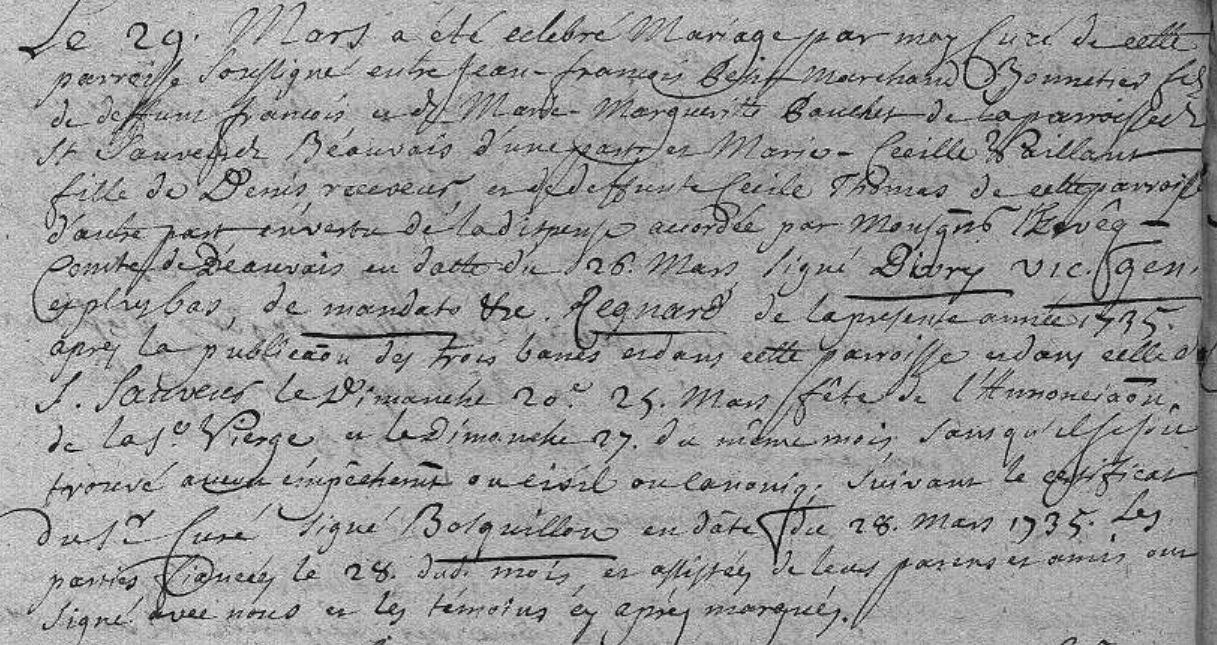 Le 29. Mars a été celebré Mariage par moy Curé de cette
parroisse soussigné entre Jean-françois marchand Bonnetier fils
de deffunt françois et de Marie-Margueritte Bouchet de la parroisse de
St Sauveur de Béauvais d'une part et Marie-Cecille Vaillant
fille de Denis receveur et de deffunte Cecile Thomas de cette parroisse
d'autre part en vertu de la dispense accordée par Monsgnr l'Evêq
Comte de Béauvais en datte du 26. Mars signé Divry vic. gen.
et plus bas, de mandato &c. Regnard de la presente année 1735.
aprés la publicaōn des trois bancs et dans cette parroisse et dans celle de
S. Sauveur le Dimanche 20.e 25. Mars fête de l'Annonciaōn
de la Ste Vierge et le Dimanche 27. du même mois sans qu'il se soit
trouvé aucun empêchemt ou civil ou canoniq. suivant le certificat
du Sr Curé signé Bosquillon en date du 28. Mars 1735. Les
parties fiancées le 28. dud. mois, et assistées de leurs parens et amis ont
signé avec nous et les témoins cy aprés marqués.